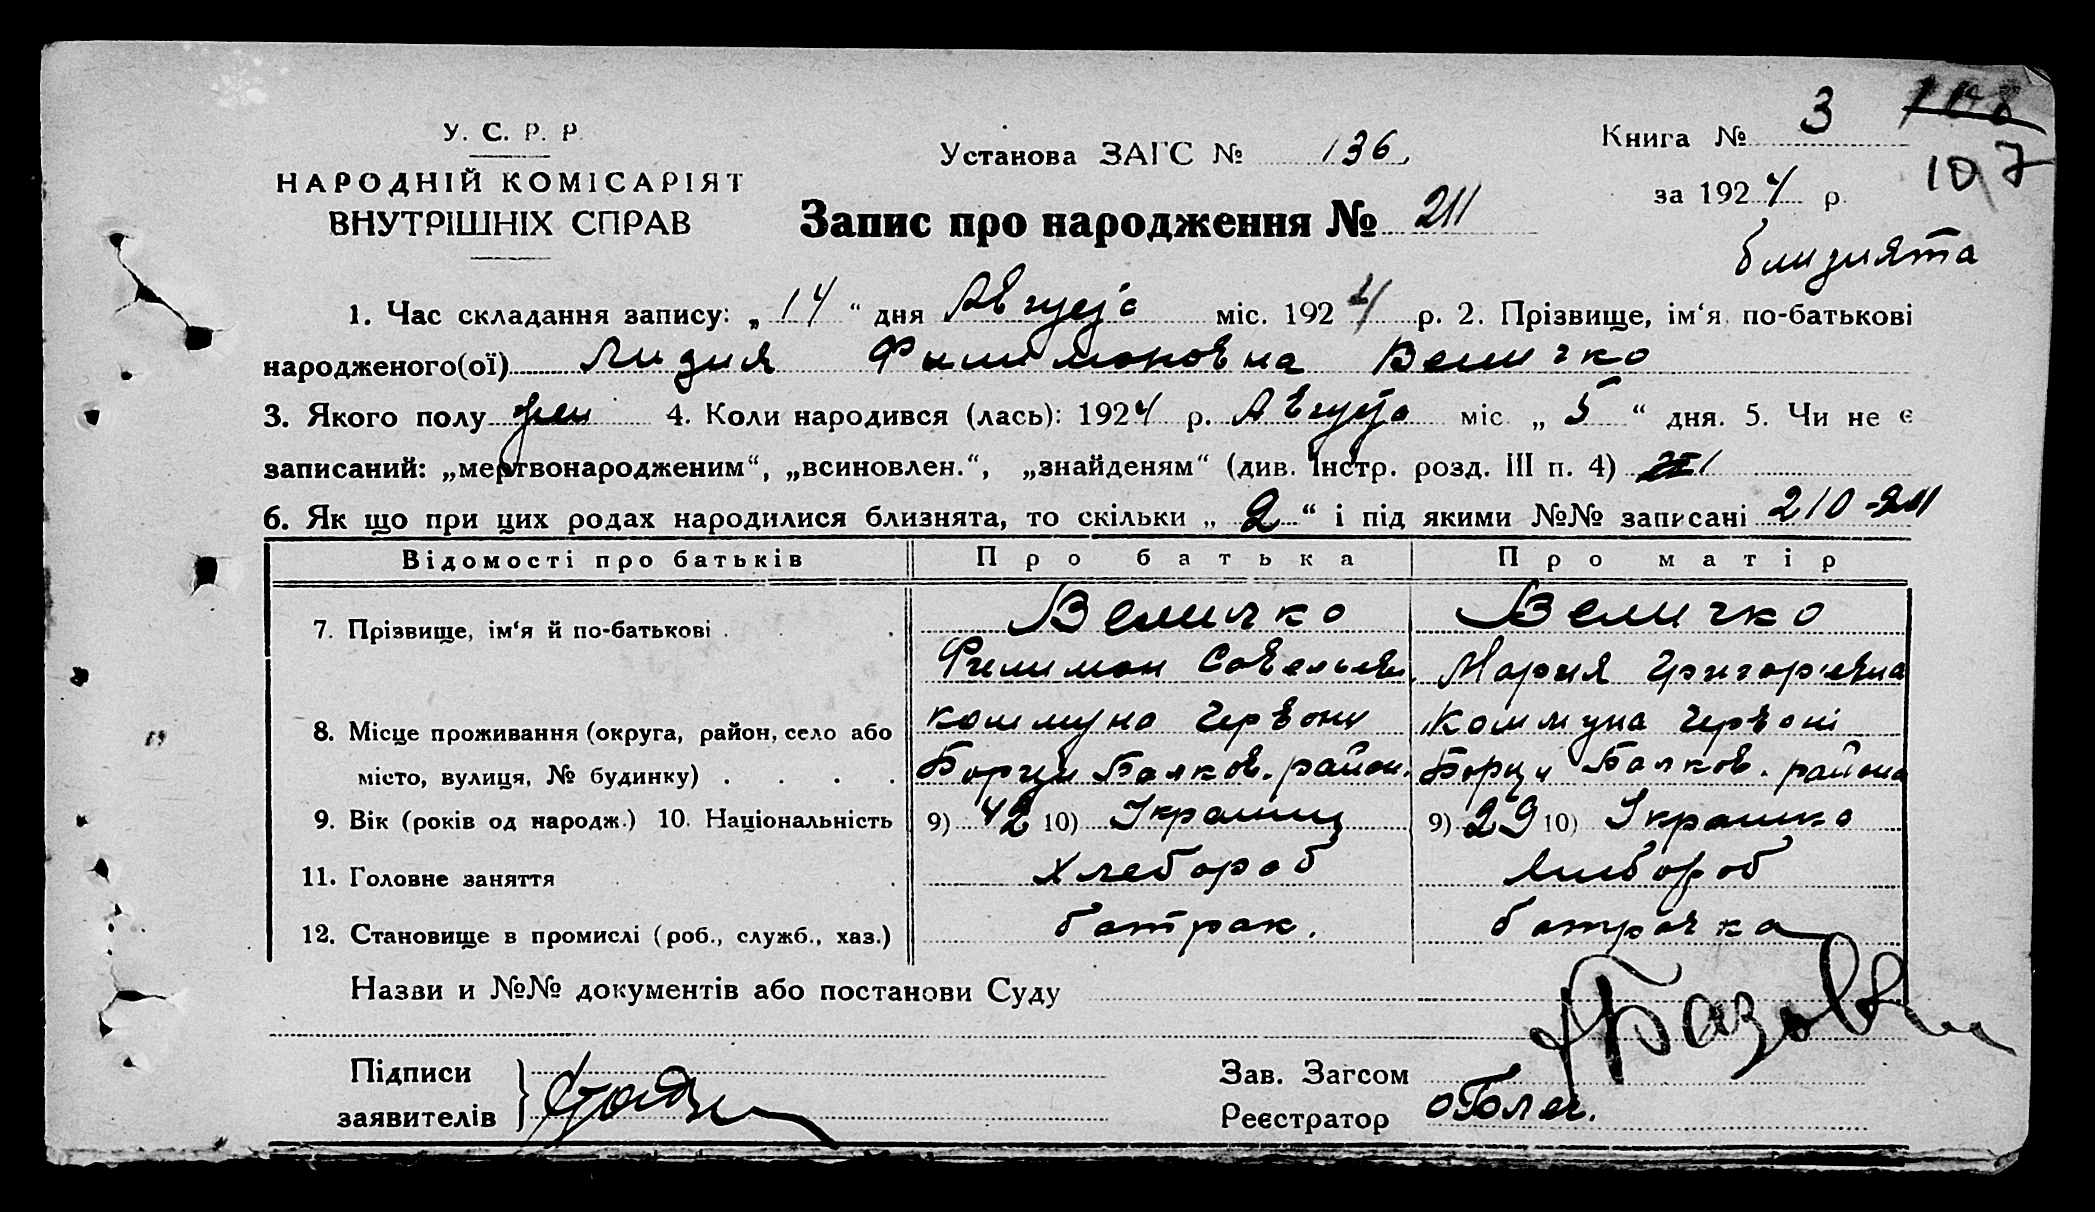 У. С. Р. Р
НАРОДНІЙ КОМІСАРІЯТ
ВНУТРІШНІХ СПРАВ
Установа ЗАГС № 136
Запис про народження № 211
Книга № 3 108
за 1924 р. 107
близнята
1. Час складання запису: „14“ дня Августа міс. 1924 р. 2. Прізвище, ім‘я, по-батькові
народженого(ої) Лидия Филимоновна Величко
3. Якого полу жен 4. Коли народився (лась): 1924 р. Августа міс. „5“ дня. 5. Чи не є
записаний: „мертвонародженим“, „всиновлен.“, „знайденям“ (див. Інстр. розд. III п. 4)
6. Як що при цих родах народилися близнята, то скільки „2“ і під якими №№ записані 210-211
Відомості про батьків Про батька Про матір
7. Прізвище, ім‘я й по-батькові Величко Величко
Филимон Савельев. Мария Григорьевна
8. Місце проживання (округа, район, село або коммуна Червони Коммуна Червоні
місто, вулиця, № будинку) Борци Балков. район. Борци Балков. района
9. Вік (років од народж.) 10. Національність 9) 42 10) Украинц 9) 29 10) Украинка
11. Головне заняття Хлебороб Хлибороб
12. Становище в промислі (роб., служб., хаз.) батрак. батрачка
Назви и №№ документів або постанови Суду
Підписи
заявителів
Зав. Загсом
Реєстратор